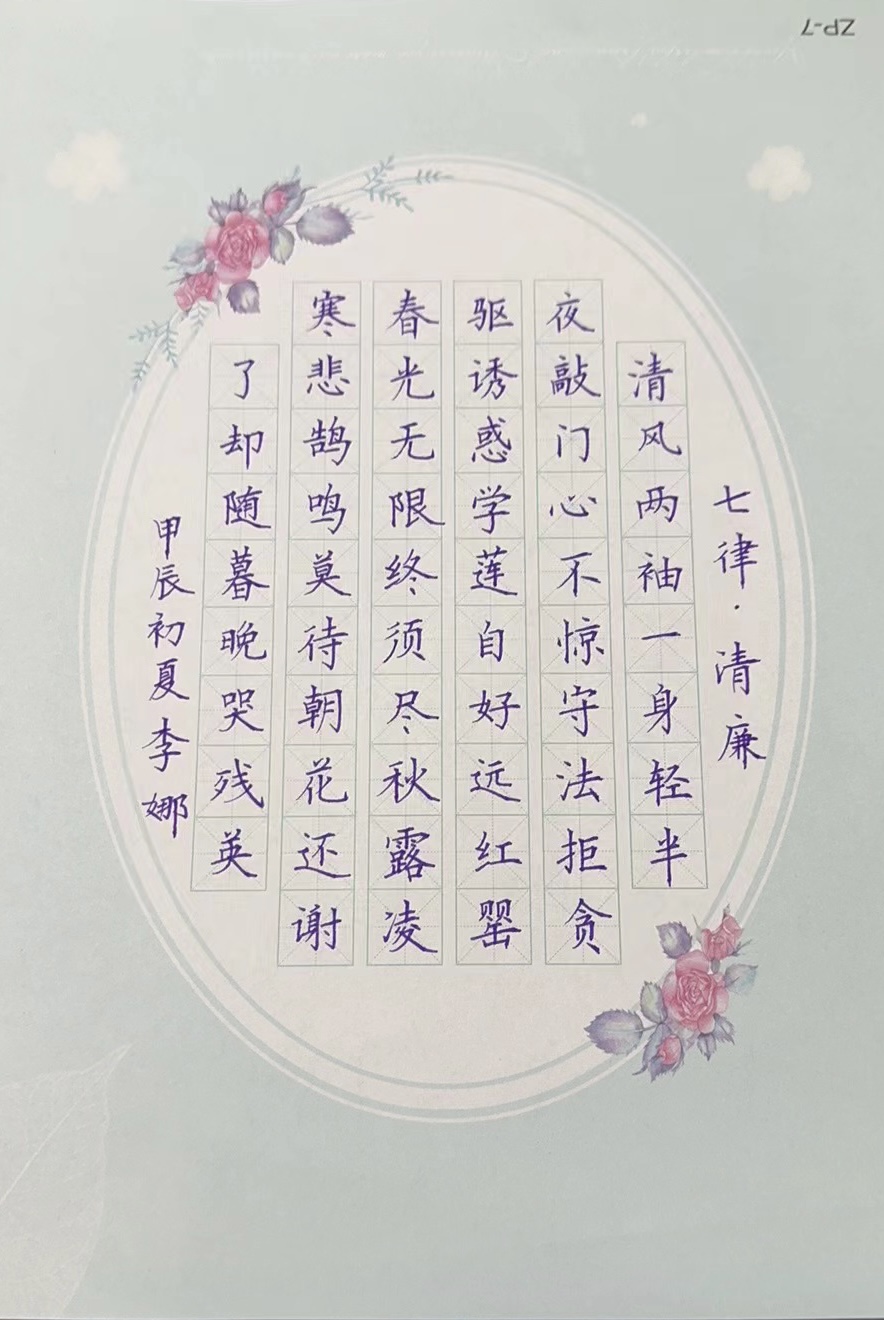 七律·清廉
清风两袖一身轻半
夜敲门心不惊守法拒贪
驱诱惑学莲自好远红罂
春光无限终须尽秋露凌
寒悲鹄鸣莫待朝花还谢
了却随暮晚哭残英
甲辰初夏李娜
ZP-7